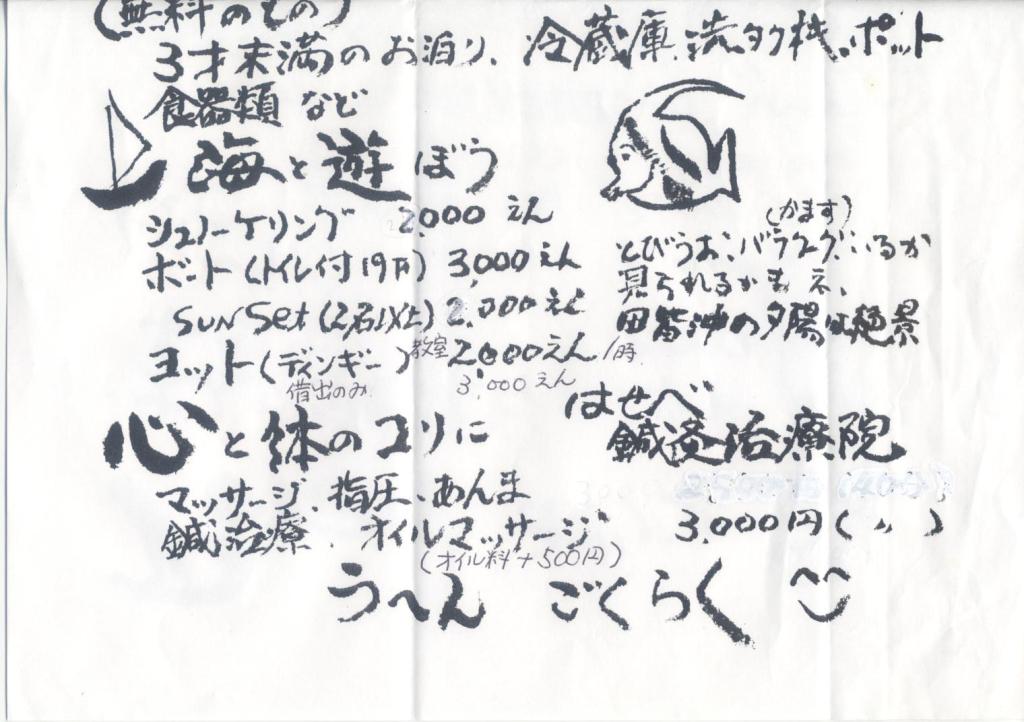 (無料のもの)
3才未満のお泊り、冷蔵庫、洗タク機、ポット
食器類 など
海と遊ぼう
シュノーケリング 2,000 えん
ボート (トイレ付 19ft) 3,000 えん
SunSet (2名以上) 2,000 えん
ヨット (ディンギー) 教室 2000えん/時
借出のみ 3,000えん
(かます)
とびうお、バラクーダ、いるか
見られるかもネ、
田皆沖の夕陽は絶景
心と体のコリに
マッサージ、指圧、あんま
鍼治療、オイルマッサージ
(オイル料+500円)
はせべ
鍼灸治療院
3,000円( 〃 )
う~ん ごくらく